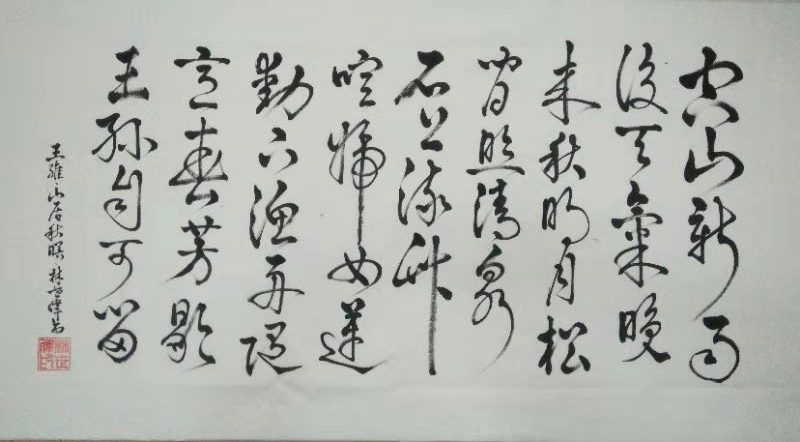 空山新雨
後天氣晚
来秋明月松
間照清泉
石上流竹
喧歸女蓮
動下漁舟随
意春芳歇
王孫自可留
王維山居秋暝 林世偉书